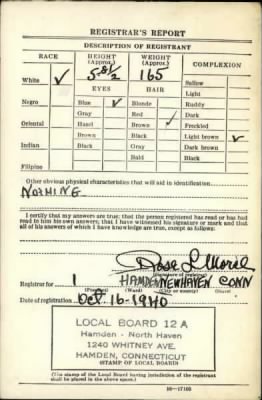 REGISTRAR'S REPORT
DESCRIPTION OF REGISTRANT
RACE HEIGHT (Approx.) WEIGHT (Approx.) COMPLEXION
5-8½ 165
White ✓ Sallow
EYES HAIR Light
Negro Blue ✓ Blonde Ruddy
Gray Red Dark
Oriental Hazel Brown ✓ Freckled
Brown Black Light brown ✓
Indian Black Gray Dark brown
Bald Black
Filipino
Other obvious physical characteristics that will aid in identification
NOTHING
I certify that my answers are true; that the person registered has read or has had
read to him his own answers; that I have witnessed his signature or mark and that
all of his answers of which I have knowledge are true, except as follows:
(Signature of registrar)
Registrar for 1 HAMDEN NEW HAVEN CONN
(Precinct) (Ward) (City or county) (State)
Date of registration Oct. 16-1940
LOCAL BOARD 12 A
Hamden - North Haven
1240 WHITNEY AVE.
HAMDEN, CONNECTICUT
(STAMP OF LOCAL BOARD)
(The stamp of the Local Board having jurisdiction of the registrant
shall be placed in the above space.)